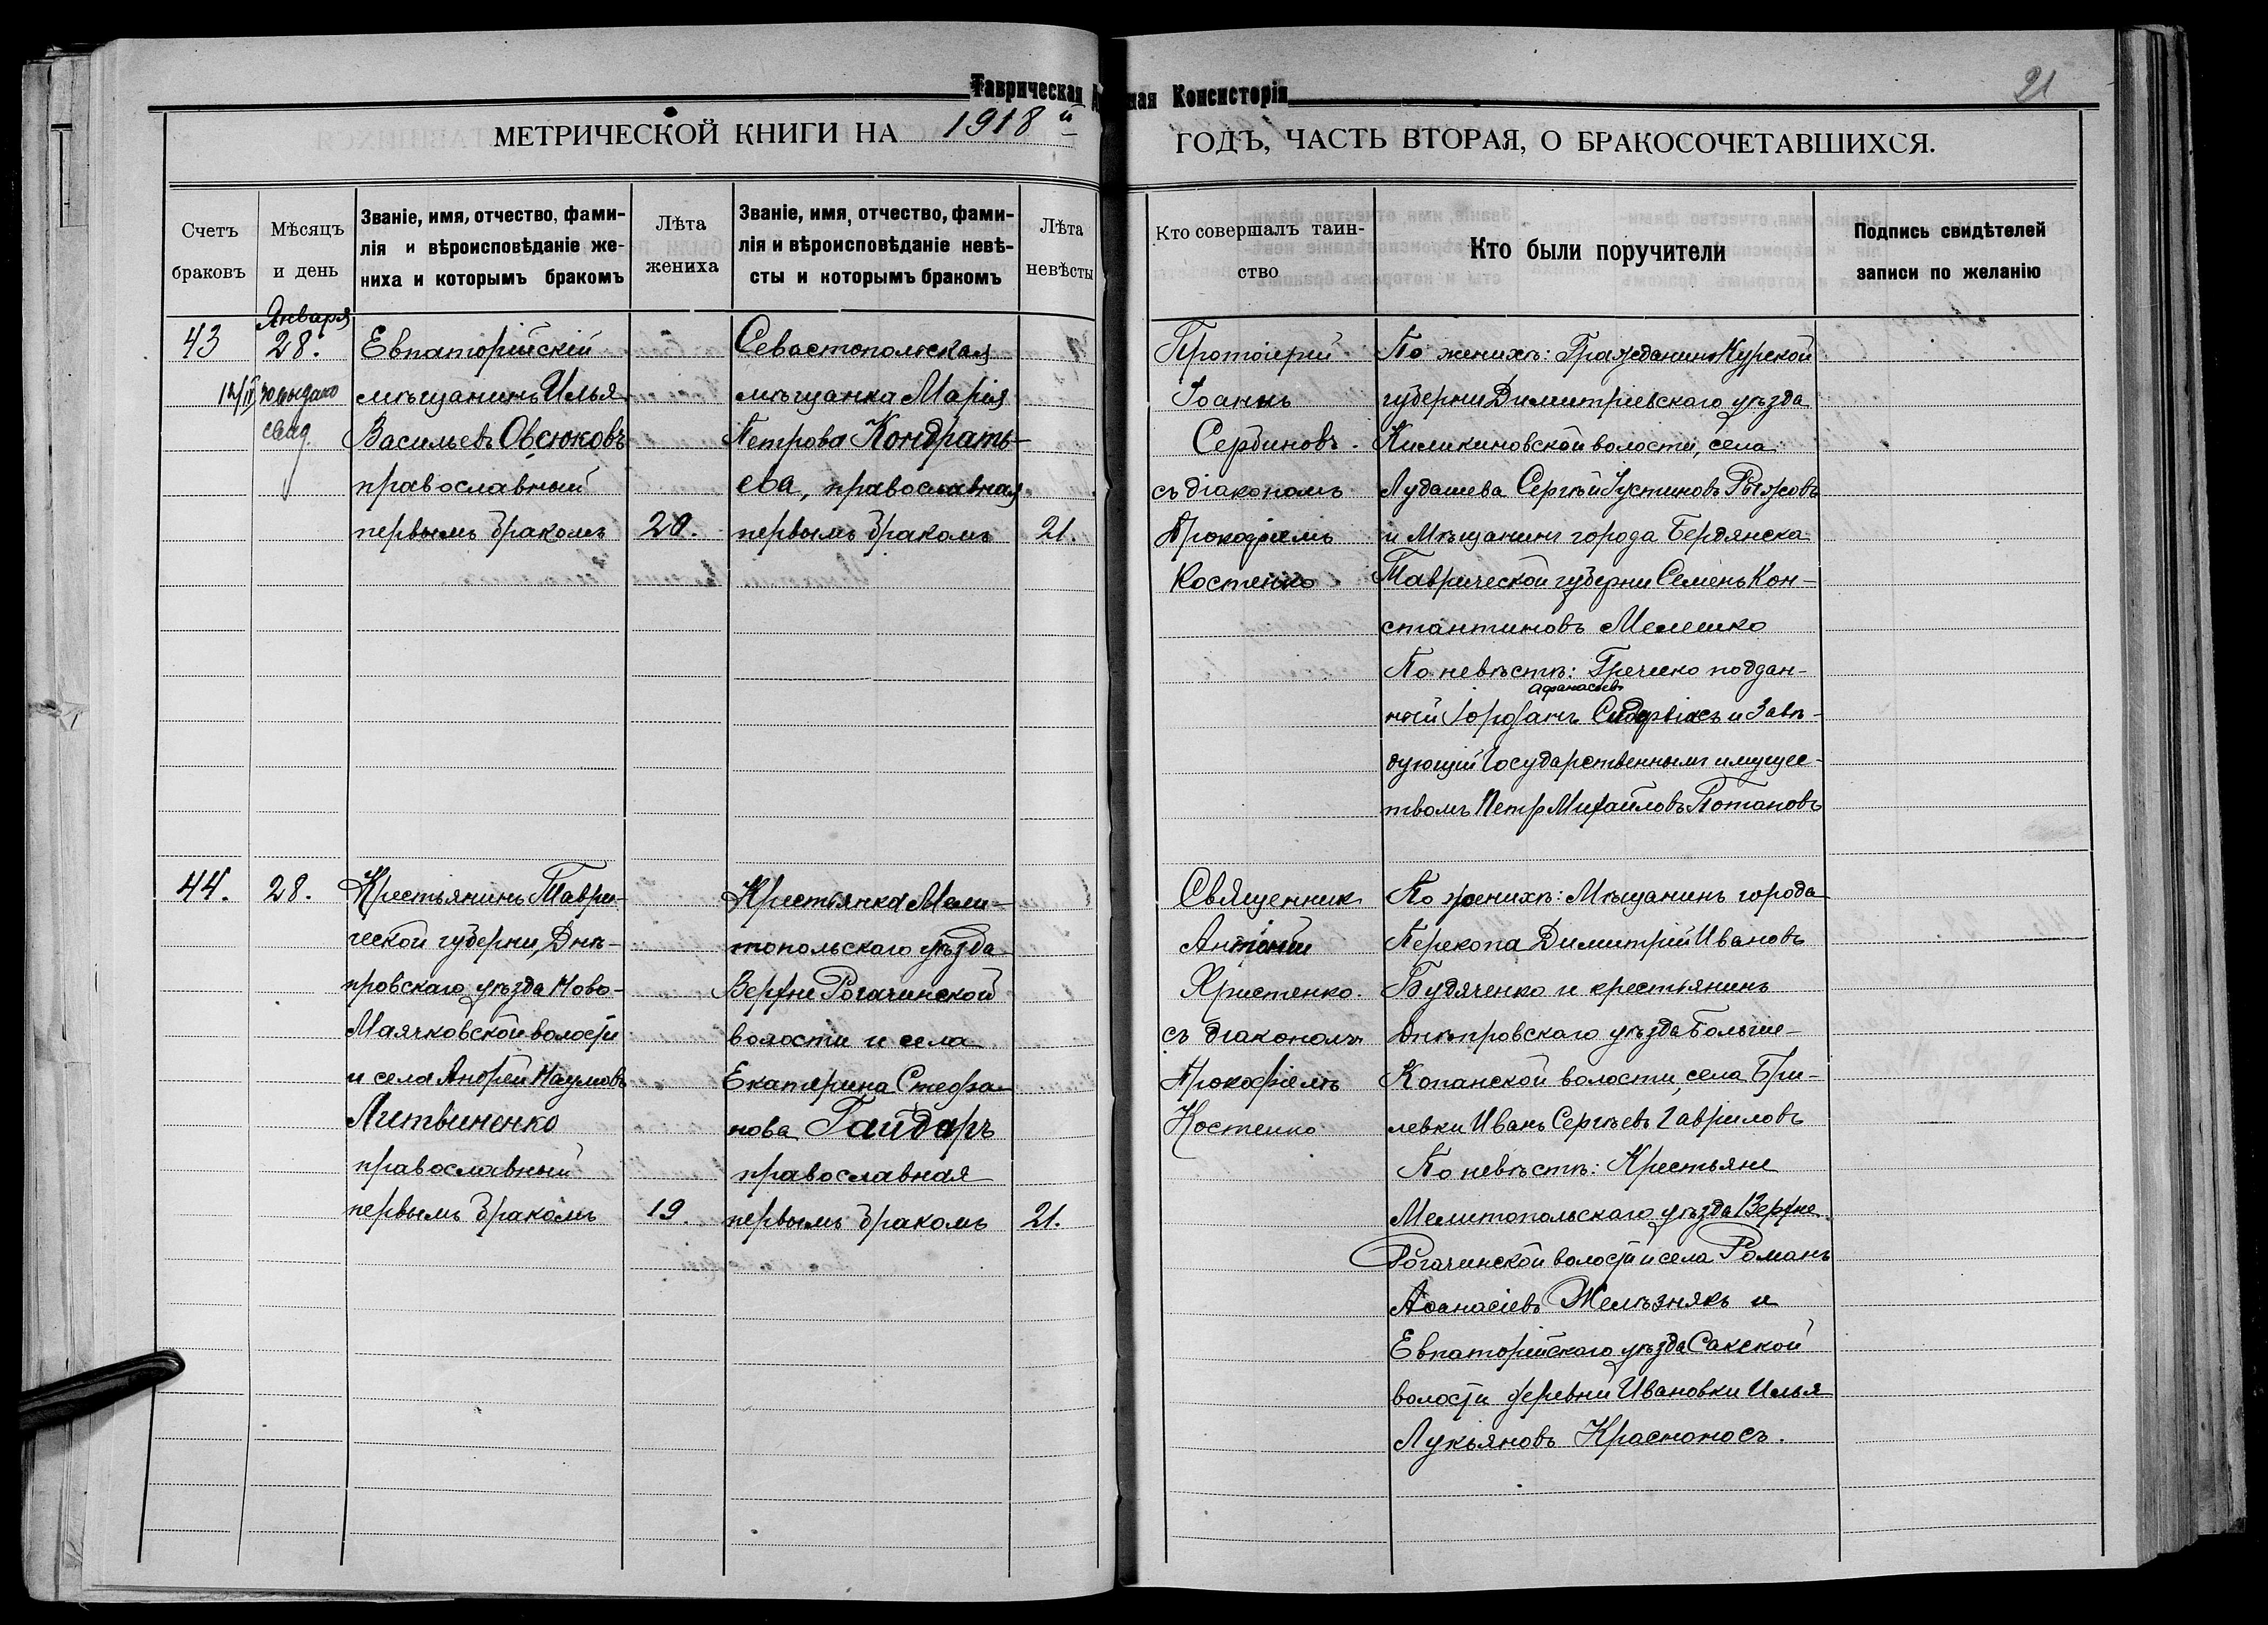 Таврическая ная Консисторія
21
МЕТРИЧЕСКОЙ КНИГИ НА 1918 й
ГОДЪ, ЧАСТЬ ВТОРАЯ, О БРАКОСОЧЕТАВШИХСЯ.
Счетъ
браковъ
Мѣсяцъ
и день
Званіе, имя, отчество, фами-
лія и вѣроисповѣданіе же-
ниха и которымъ бракомъ
Лѣта
жениха
Званіе, имя, отчество, фами-
лія и вѣроисповѣданіе невѣ-
сты и которымъ бракомъ
Лѣта
невѣсты
Кто совершалъ таин-
ство
Кто были поручители
Подпись свидѣтелей
записи по желанію
43
Января
28.
Евпаторійскій
мѣщанинъ Илья
Васильевъ Овсюковъ
православный
первымъ бракомъ
20.
Севастопольская
мѣщанка Марія
Петрова Кондрать-
ева, православная
первымъ бракомъ
21.
Протоіерей
Іоаннъ
Сербиновъ
съ діакономъ
Прокофіемъ
Костенко
По женихѣ: Гражданинъ Курской
губерни Димитріевскаго уѣзда
волости, села
Сергѣй Іустиновъ Рыжовъ
и Мѣщанинъ города Бердянска
Таврической губерни Семенъ Кон-
стантиновъ Мелешко
По невѣстѣ: Гречено поддан-
Афанасьевъ
ный Іорданъ и Завѣ-
дующій Государственнымъ имущес-
твомъ Петр Михайловъ Потаповъ
44.
28.
Крестьянинъ Таври-
ческой губерни, Днѣ-
провскаго уѣзда Ново-
Маячковской волости
и села Андрей Наумовъ
Литвиненко
православный
первымъ бракомъ
19.
Крестьянка Мели-
топольскаго уѣзда
Верхне Рогачинской
волости и села
Екатерина Стефа-
нова Гайдаръ
православная
первымъ бракомъ
21.
Священник
Антоній
Христенко.
съ діакономъ
Прокофіемъ
Костенко
По женихѣ: Мѣщанинъ города
Перекопа Димитрій Ивановъ
Будяченко и крестьянинъ
Днѣпровскаго уѣзда Больше-
Копанской волости, села Бри-
левки Иванъ Сергѣевъ Гавриловъ
По невѣстѣ: Крестьяне
Мелитопольскаго уѣзда Верхне
Рогачинской волости и села Романъ
Аѳанасіевъ Желѣзнякъ и
Евпаторійскаго уѣзда Сакской
волости деревни Ивановки Илья
Лукьяновъ Красноносъ.